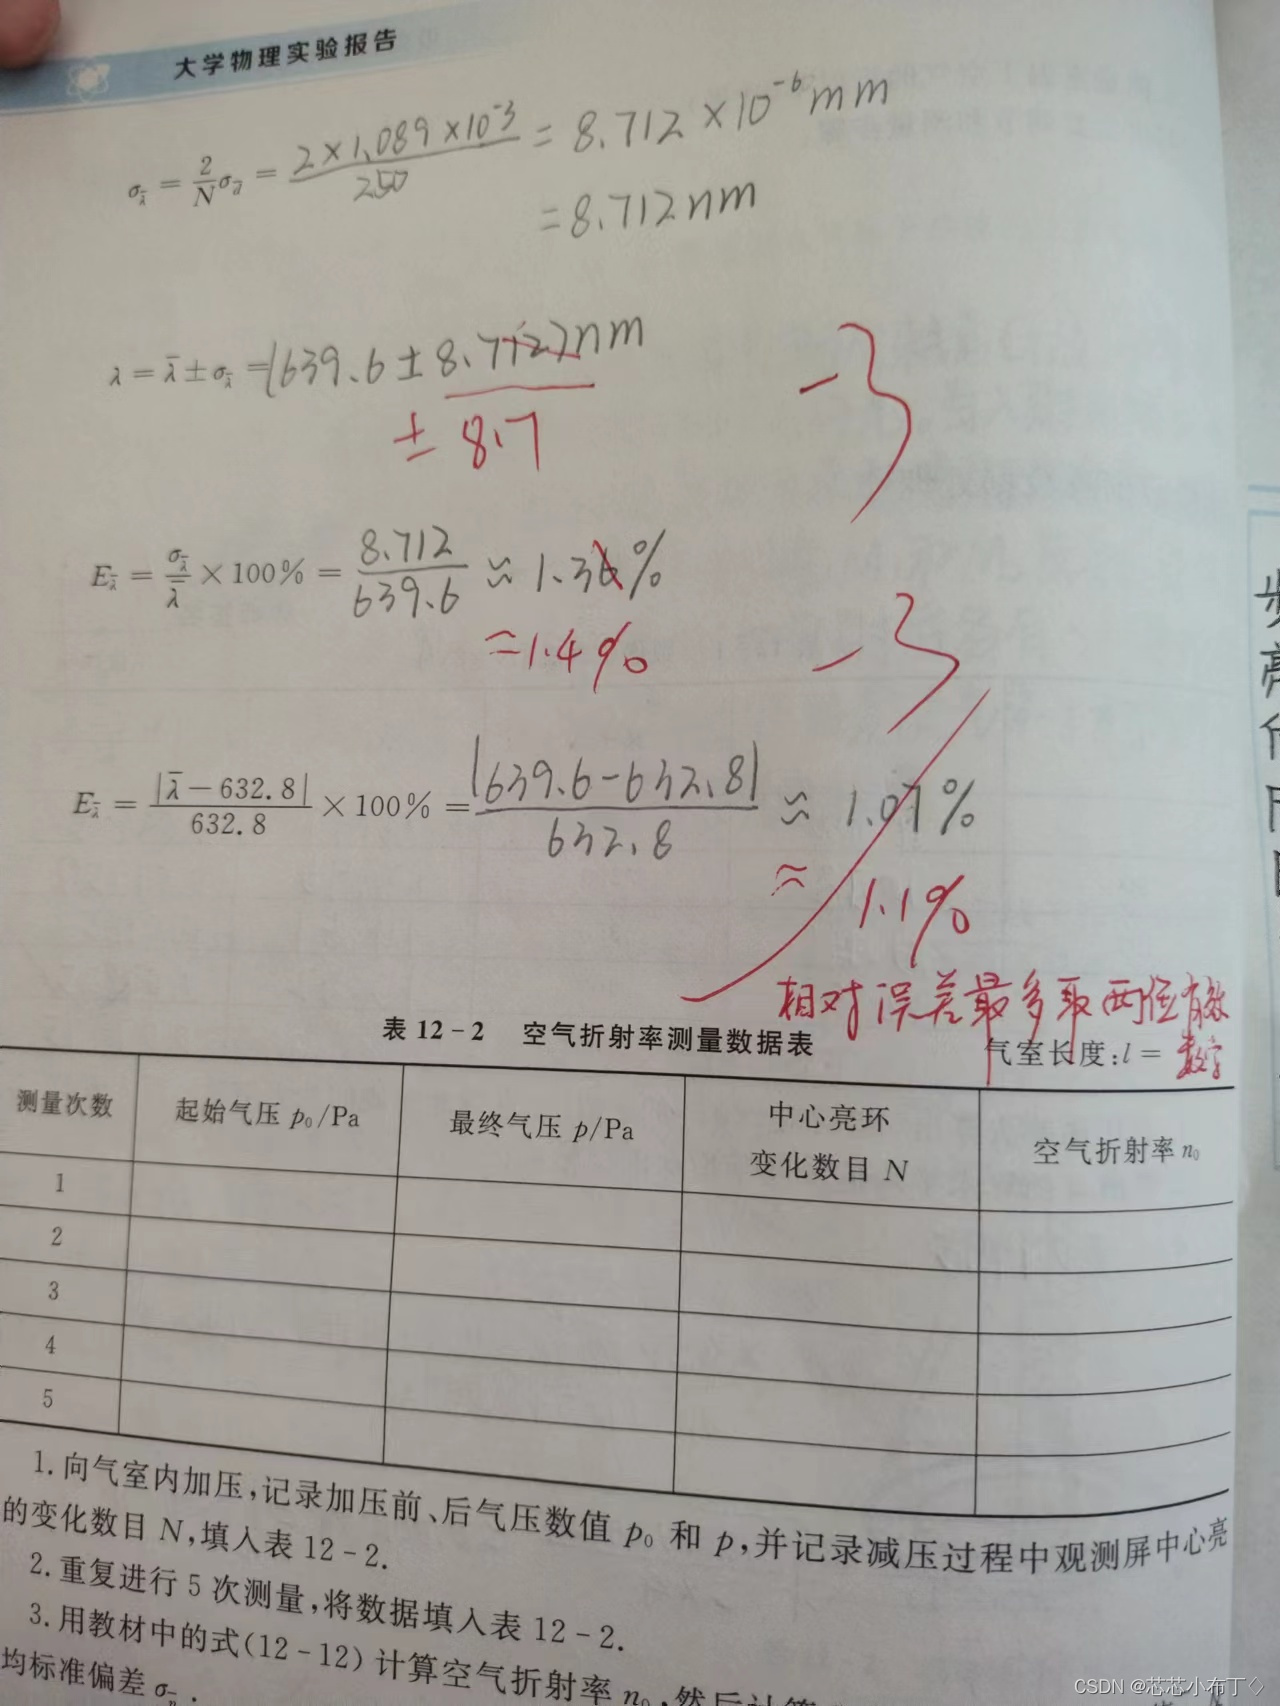 大学物理实验报告
σ_λ̄ = 2/N σ_d̄ = 2×1.089×10⁻³/250 = 8.712×10⁻⁶mm
=8.712nm
λ = λ̄ ± σ_λ̄ =(639.6±8.712)nm
± 8.7
-3
E_λ̄ = σ_λ̄/λ̄ ×100% = 8.712/639.6 ≈ 1.36%
=1.4%
-3
E_λ̄ = |λ̄-632.8|/632.8 ×100% = |639.6-632.8|/632.8 ≈ 1.07%
≈ 1.1%
相对误差最多取两位有效
数字
表 12-2 空气折射率测量数据表
气室长度:l =
测量次数 起始气压 p₀/Pa 最终气压 p/Pa 中心亮环 变化数目 N 空气折射率 n₀
1
2
3
4
5
1.向气室内加压,记录加压前、后气压数值 p₀ 和 p,并记录减压过程中观测屏中心亮
的变化数目 N,填入表 12-2.
2.重复进行 5 次测量,将数据填入表 12-2.
3.用教材中的式(12-12)计算空气折射率 n₀,然后计算
均标准偏差 σ_n̄.
CSDN @芯芯小布丁◇